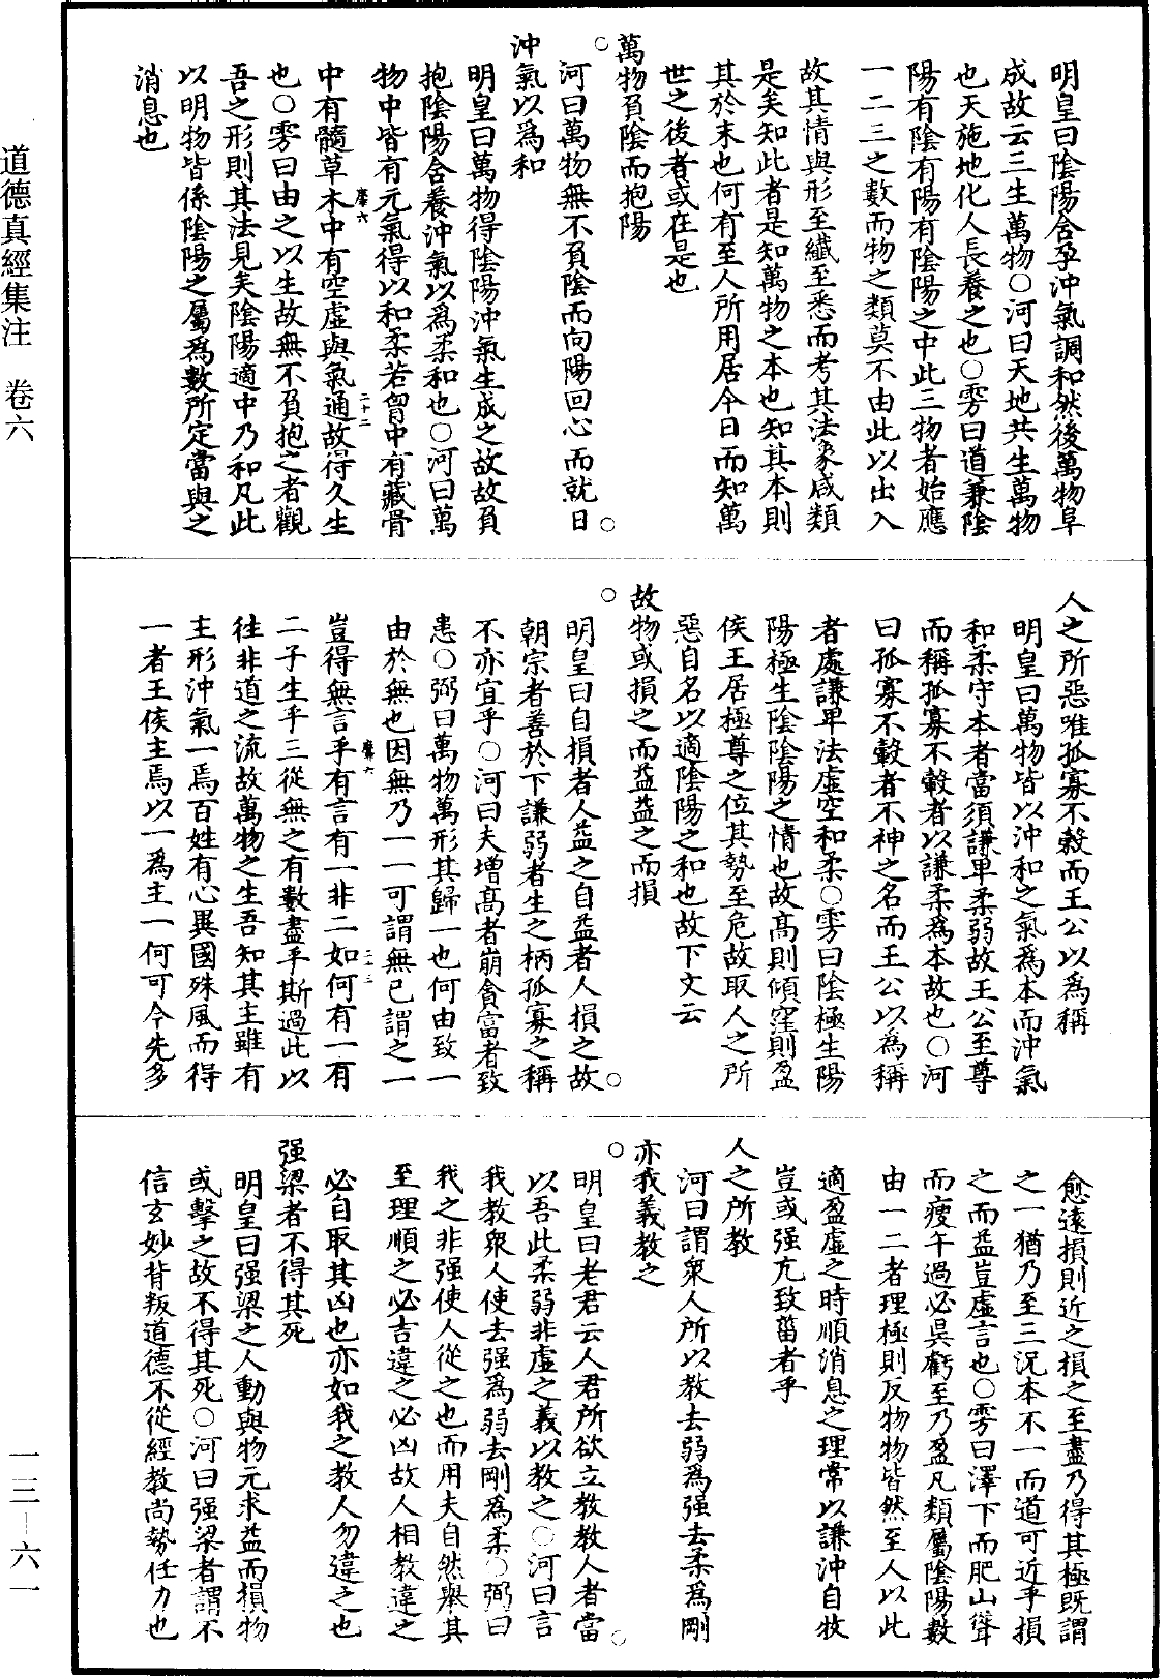 明皇曰陰陽含孕沖氣調和然後萬物阜
成故云三生萬物○河曰天地共生萬物
也天施地化人長養之也○雱曰道兼陰
陽有陰有陽有陰陽之中此三物者始應
一二三之數而物之類莫不由此以出入
故其情與形至纖至悉而考其法象咸類
是矣知此者是知萬物之本也知其本則
其於末也何有至人所用居今日而知萬
世之後者或在是也
萬物負陰而抱陽
○
河曰萬物無不負陰而向陽回心而就日
○
沖氣以為和
明皇曰萬物得陰陽沖氣生成之故故負
抱陰陽含養沖氣以為柔和也○河曰萬
物中皆有元氣得以和柔若胷中有藏骨
靡六
二十二
中有髓草木中有空虛與氣通故得久生
也○雱曰由之以生故無不負抱之者觀
吾之形則其法見矣陰陽適中乃和凡此
以明物皆係陰陽之屬為數所定當與之
消息也
人之所惡唯孤寡不榖而王公以為稱
明皇曰萬物皆以沖和之氣為本而沖氣
和柔守本者當須謙卑柔弱故王公至尊
而稱孤寡不轂者以謙柔為本故也○河
曰孤寡不轂者不神之名而王公以為稱
者處謙卑法虛空和柔○雱曰陰極生陽
陽極生陰陰陽之情也故高則傾窪則盈
侯王居極尊之位其勢至危故取人之所
惡自名以適陰陽之和也故下文云
故物或損之而益益之而損
○
明皇曰自損者人益之自益者人損之故
○
朝宗者善於下謙弱者生之柄孤寡之稱
不亦宜乎○河曰夫增高者崩貪富者致
患○弼曰萬物萬形其歸一也何由致一
由於無也因無乃一一可謂無已謂之一
靡六
二十三
豈得無言乎有言有一非二如何有一有
二子生乎三從無之有數盡乎斯過此以
往非道之流故萬物之生吾知其主雖有
主形沖氣一焉百姓有心異國殊風而得
一者王侯主焉以一為主一何可今先多
愈遠損則近之損之至盡乃得其極既謂
之一猶乃至三況本不一而道可近乎損
之而益豈虛言也○雱曰澤下而肥山聳
而瘦午過必昃虧至乃盈凡類屬陰陽數
由一二者理極則反物物皆然至人以此
適盈虛之時順消息之理常以謙沖自牧
豈或强亢致菑者乎
人之所教
河曰謂衆人所以教去弱為强去柔為剛
亦我義教之
○
明皇曰老君云人君所欲立教教人者當
○
以吾此柔弱非虛之義以教之○河曰言
我教衆人使去强為弱去剛為柔○弼曰
我之非强使人從之也而用夫自然舉其
至理順之必吉違之必凶故人相教違之
必自取其凶也亦如我之教人勿違之也
强梁者不得其死
明皇曰强梁之人動與物元求益而損物
或擊之故不得其死○河曰强梁者謂不
信玄妙背叛道德不從經教尚勢任力也
道德真經集注 卷六
一三—六一